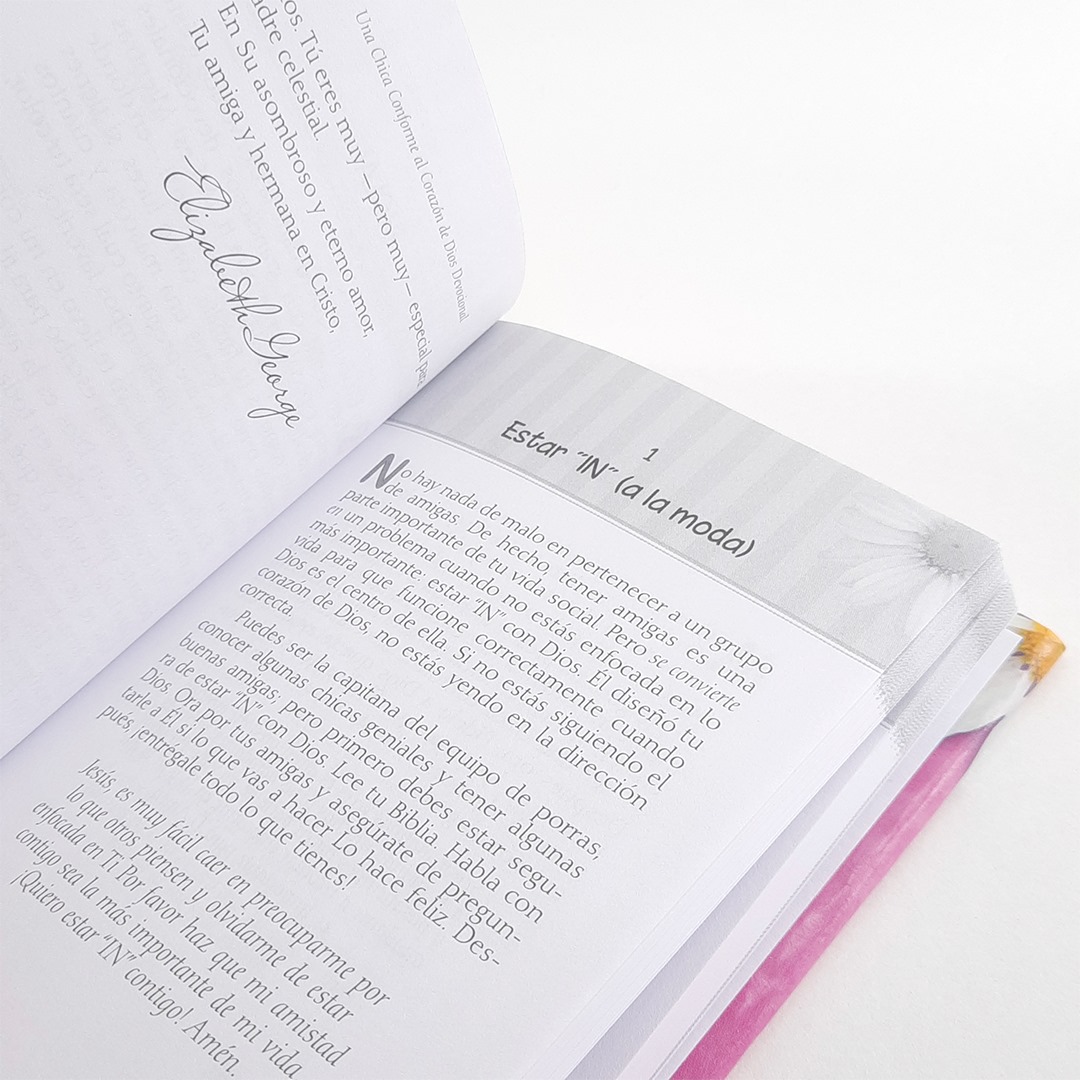 Una Chica Conforme al Corazón de Dios Devocional
os. Tú eres muy —pero muy— especial para
adre celestial.
En Su asombroso y eterno amor,
Tu amiga y hermana en Cristo,
—Elizabeth George
1
Estar “IN” (a la moda)
No hay nada de malo en pertenecer a un grupo
de amigas. De hecho, tener amigas es una
parte importante de tu vida social. Pero se convierte
en un problema cuando no estás enfocada en lo
más importante: estar “IN” con Dios. Él diseñó tu
vida para que funcione correctamente cuando
Dios es el centro de ella. Si no estás siguiendo el
corazón de Dios, no estás yendo en la dirección
correcta.
Puedes ser la capitana del equipo de porras,
conocer algunas chicas geniales y tener algunas
buenas amigas; pero primero debes estar segu-
ra de estar “IN” con Dios. Lee tu Biblia. Habla con
Dios. Ora por tus amigas y asegúrate de pregun-
tarle a Él si lo que vas a hacer Lo hace feliz. Des-
pués, ¡entrégale todo lo que tienes!
Jesús, es muy fácil caer en preocuparme por
lo que otros piensen y olvidarme de estar
enfocada en Ti. Por favor haz que mi amistad
contigo sea la más importante de mi vida
¡Quiero estar “IN” contigo! Amén.